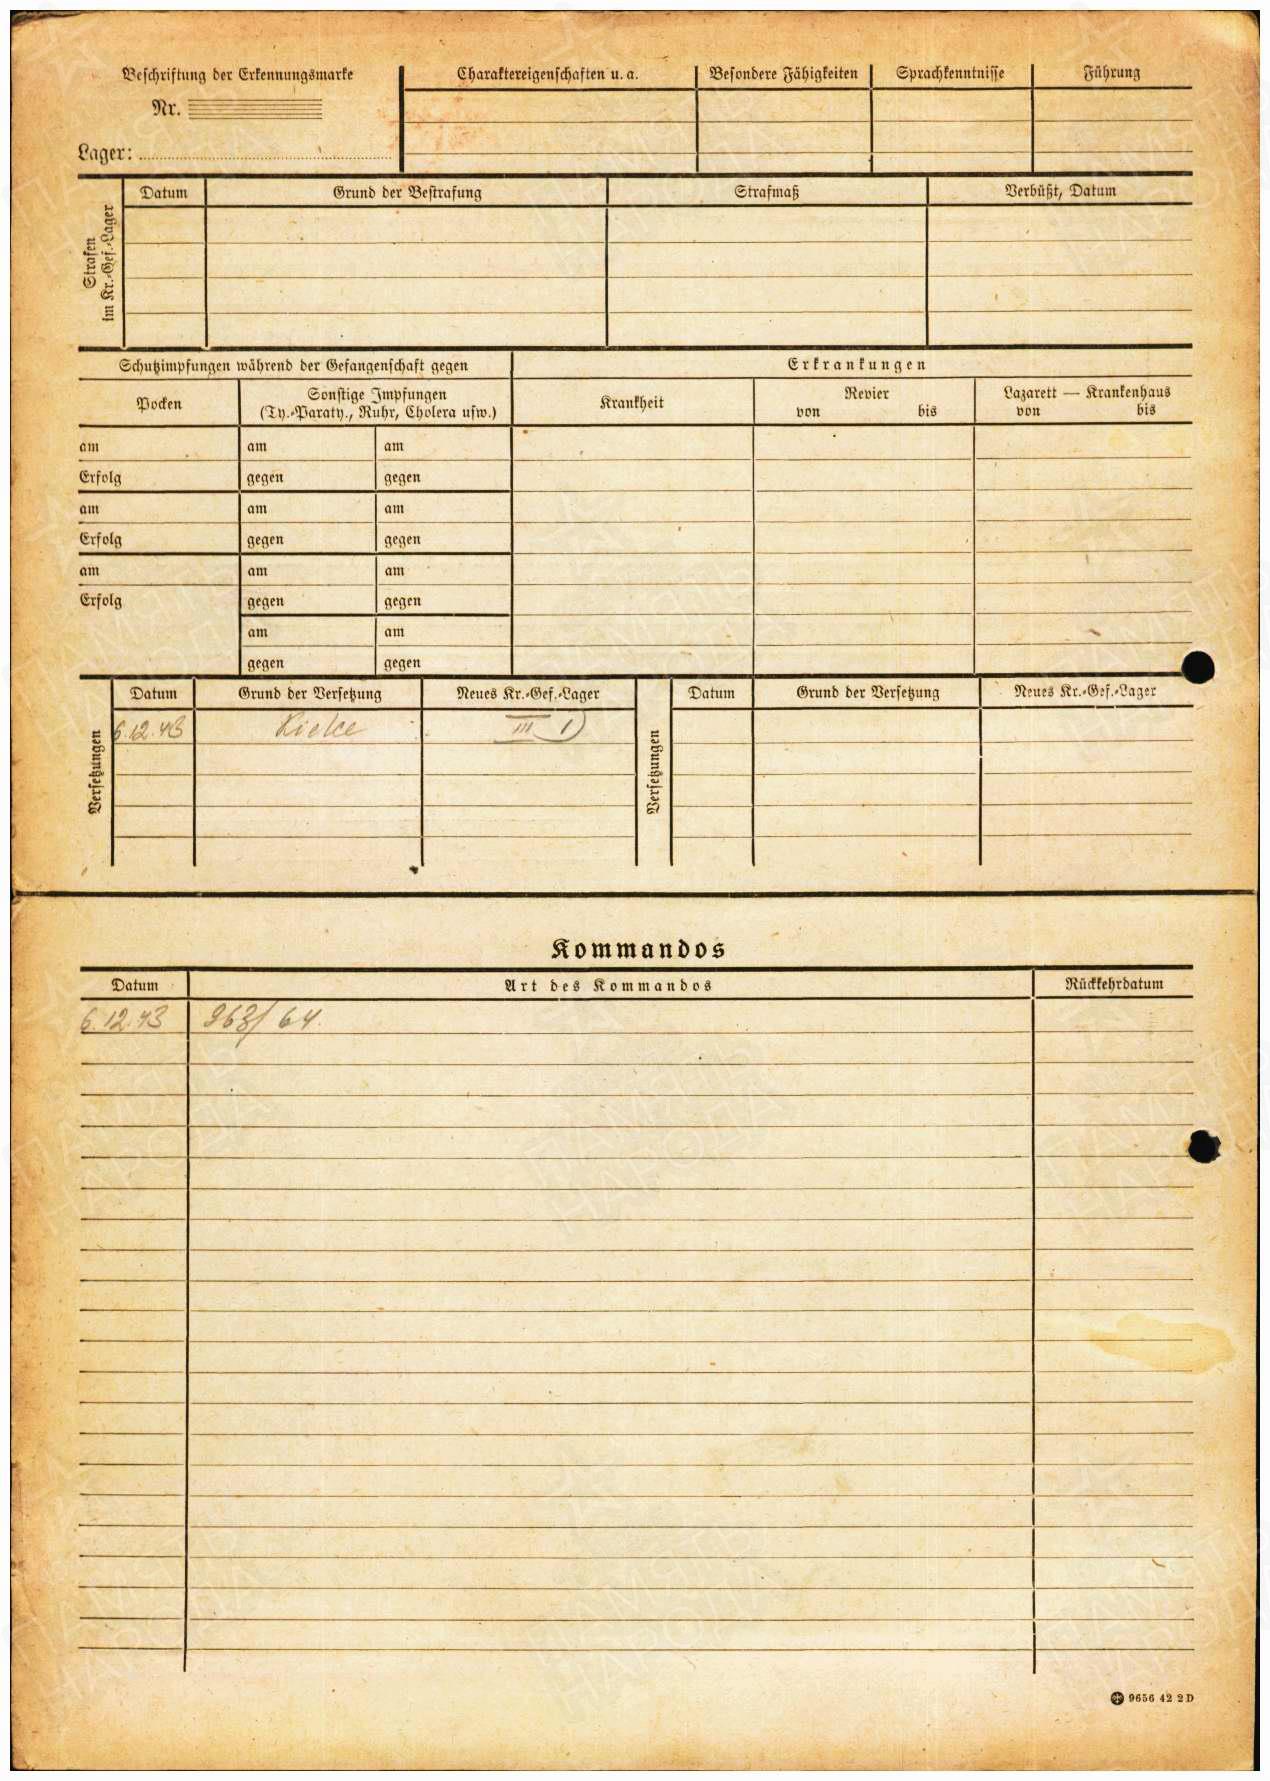 Beschriftung der Erkennungsmarke
Nr.
Lager:
Charaktereigenschaften u. a.
Besondere Fähigkeiten
Sprachkenntnisse
Führung
Strafen
im Kr.-Gef.-Lager
Datum
Grund der Bestrafung
Strafmaß
Verbüßt, Datum
Schutzimpfungen während der Gefangenschaft gegen
Erkrankungen
Pocken
Sonstige Impfungen
(Ty.-Paraty., Ruhr, Cholera usw.)
Krankheit
Revier
von bis
Lazarett — Krankenhaus
von bis
am am am
Erfolg gegen gegen
am am am
Erfolg gegen gegen
am am am
Erfolg gegen gegen
am am
gegen gegen
Versetzungen
Datum Grund der Versetzung Neues Kr.-Gef.-Lager
6.12.43 Kielce III
Versetzungen
Datum Grund der Versetzung Neues Kr.-Gef.-Lager
Kommandos
Datum Art des Kommandos Rückkehrdatum
6.12.43 / 64.
9656 42 2 D
ПАМЯТЬ
НАРОДА